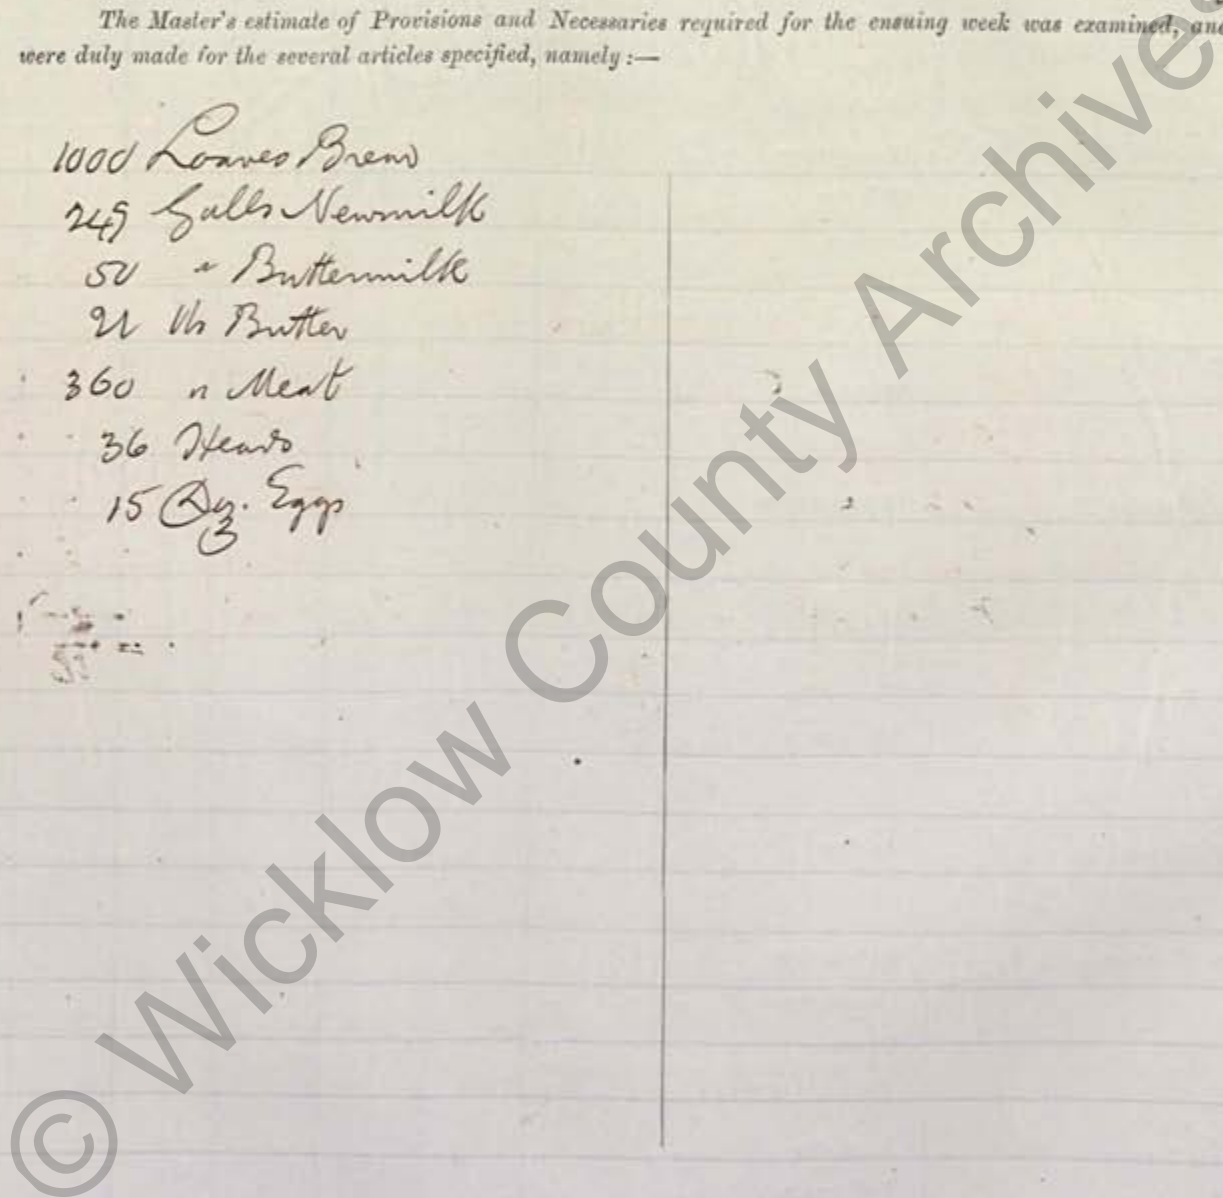 The Master's estimate of Provisions and Necessaries required for the ensuing week was examined, and
were duly made for the several articles specified, namely :—
1000 Loaves Bread
245 Galls Newmilk
50 " Buttermilk
21 lbs Butter
360 " Meat
36 Heads
15 Doz. Eggs
© Wicklow County Archives